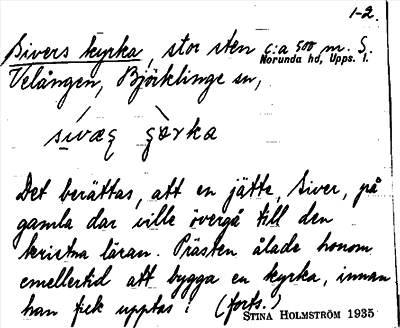 1-2.
Sivers kyrka, stor sten c:a 500 m. S.
Norunda hd, Upps. l.
Velången, Björklinge sn,
sívæȩ çø̀rka
Det berättas, att en jätte, Siver, på
gamla dar ville övergå till den
kristna läran. Prästen ålade honom
emellertid att bygga en kyrka, innan
han fick upptas i (forts.)
STINA HOLMSTRÖM 1935